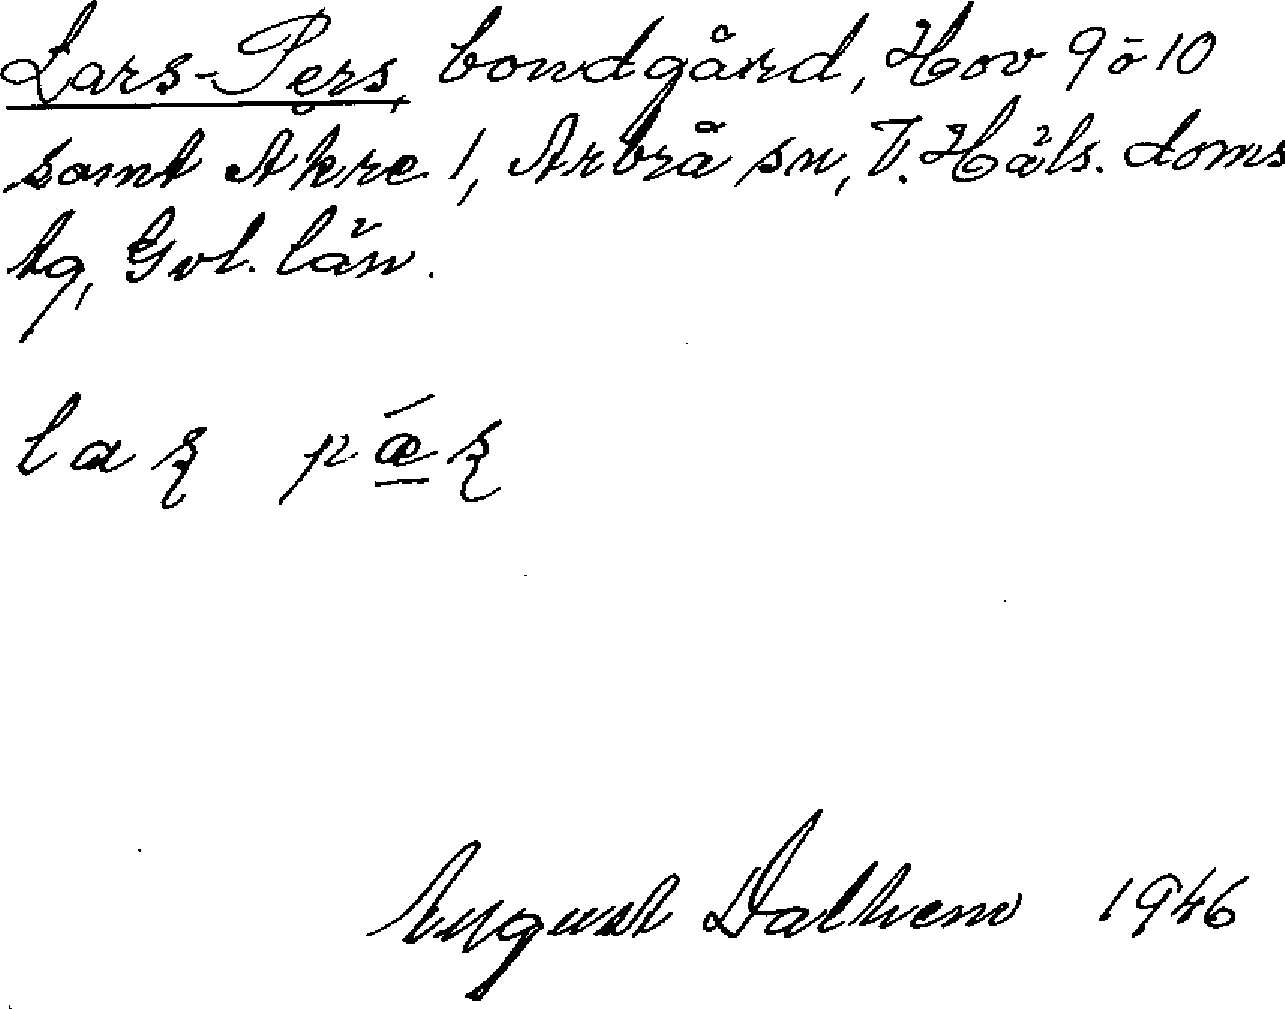 Lars-Pers, bondgård, Hov 9 o 10
samt Åkre 1, Arbrå sn, V. Häls. doms
tg, Gvl. län.
laʂ pǽʂ
August Dalhem 1946